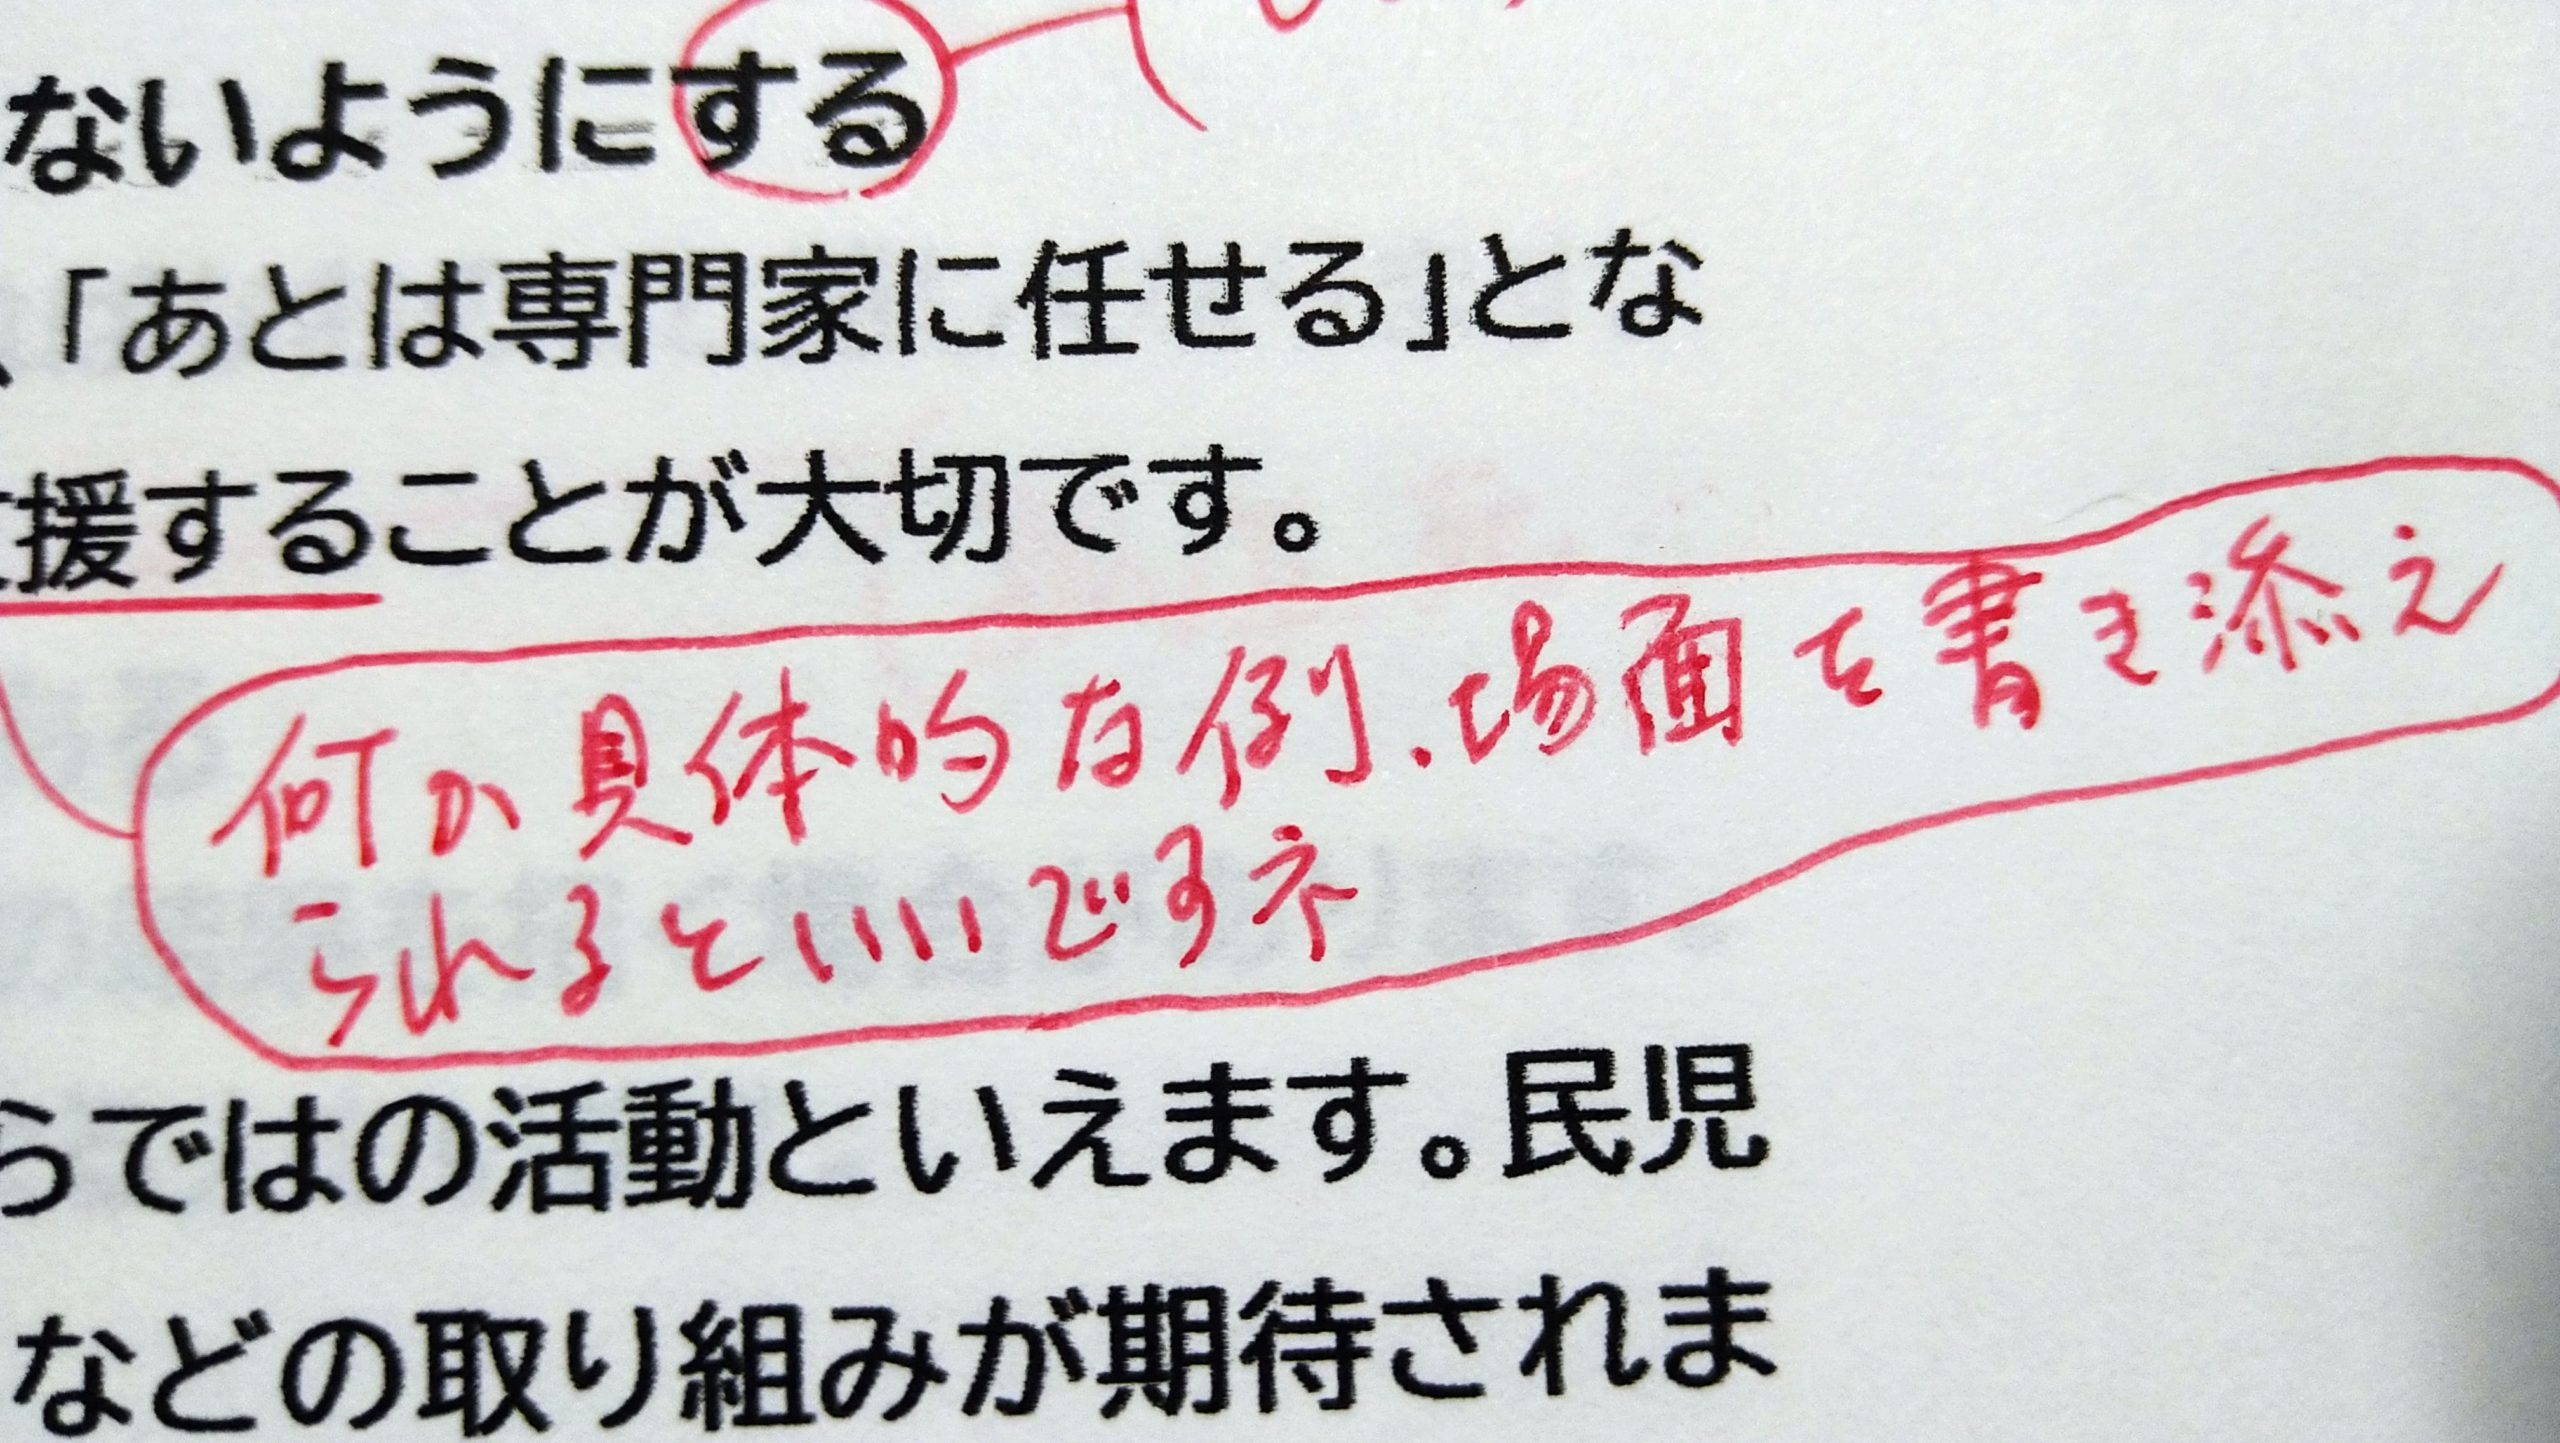 ないようにする
、「あとは専門家に任せる」とな
援することが大切です。
何か具体的な例、場面を書き添え
られるといいですネ
らではの活動といえます。民児
などの取り組みが期待されま